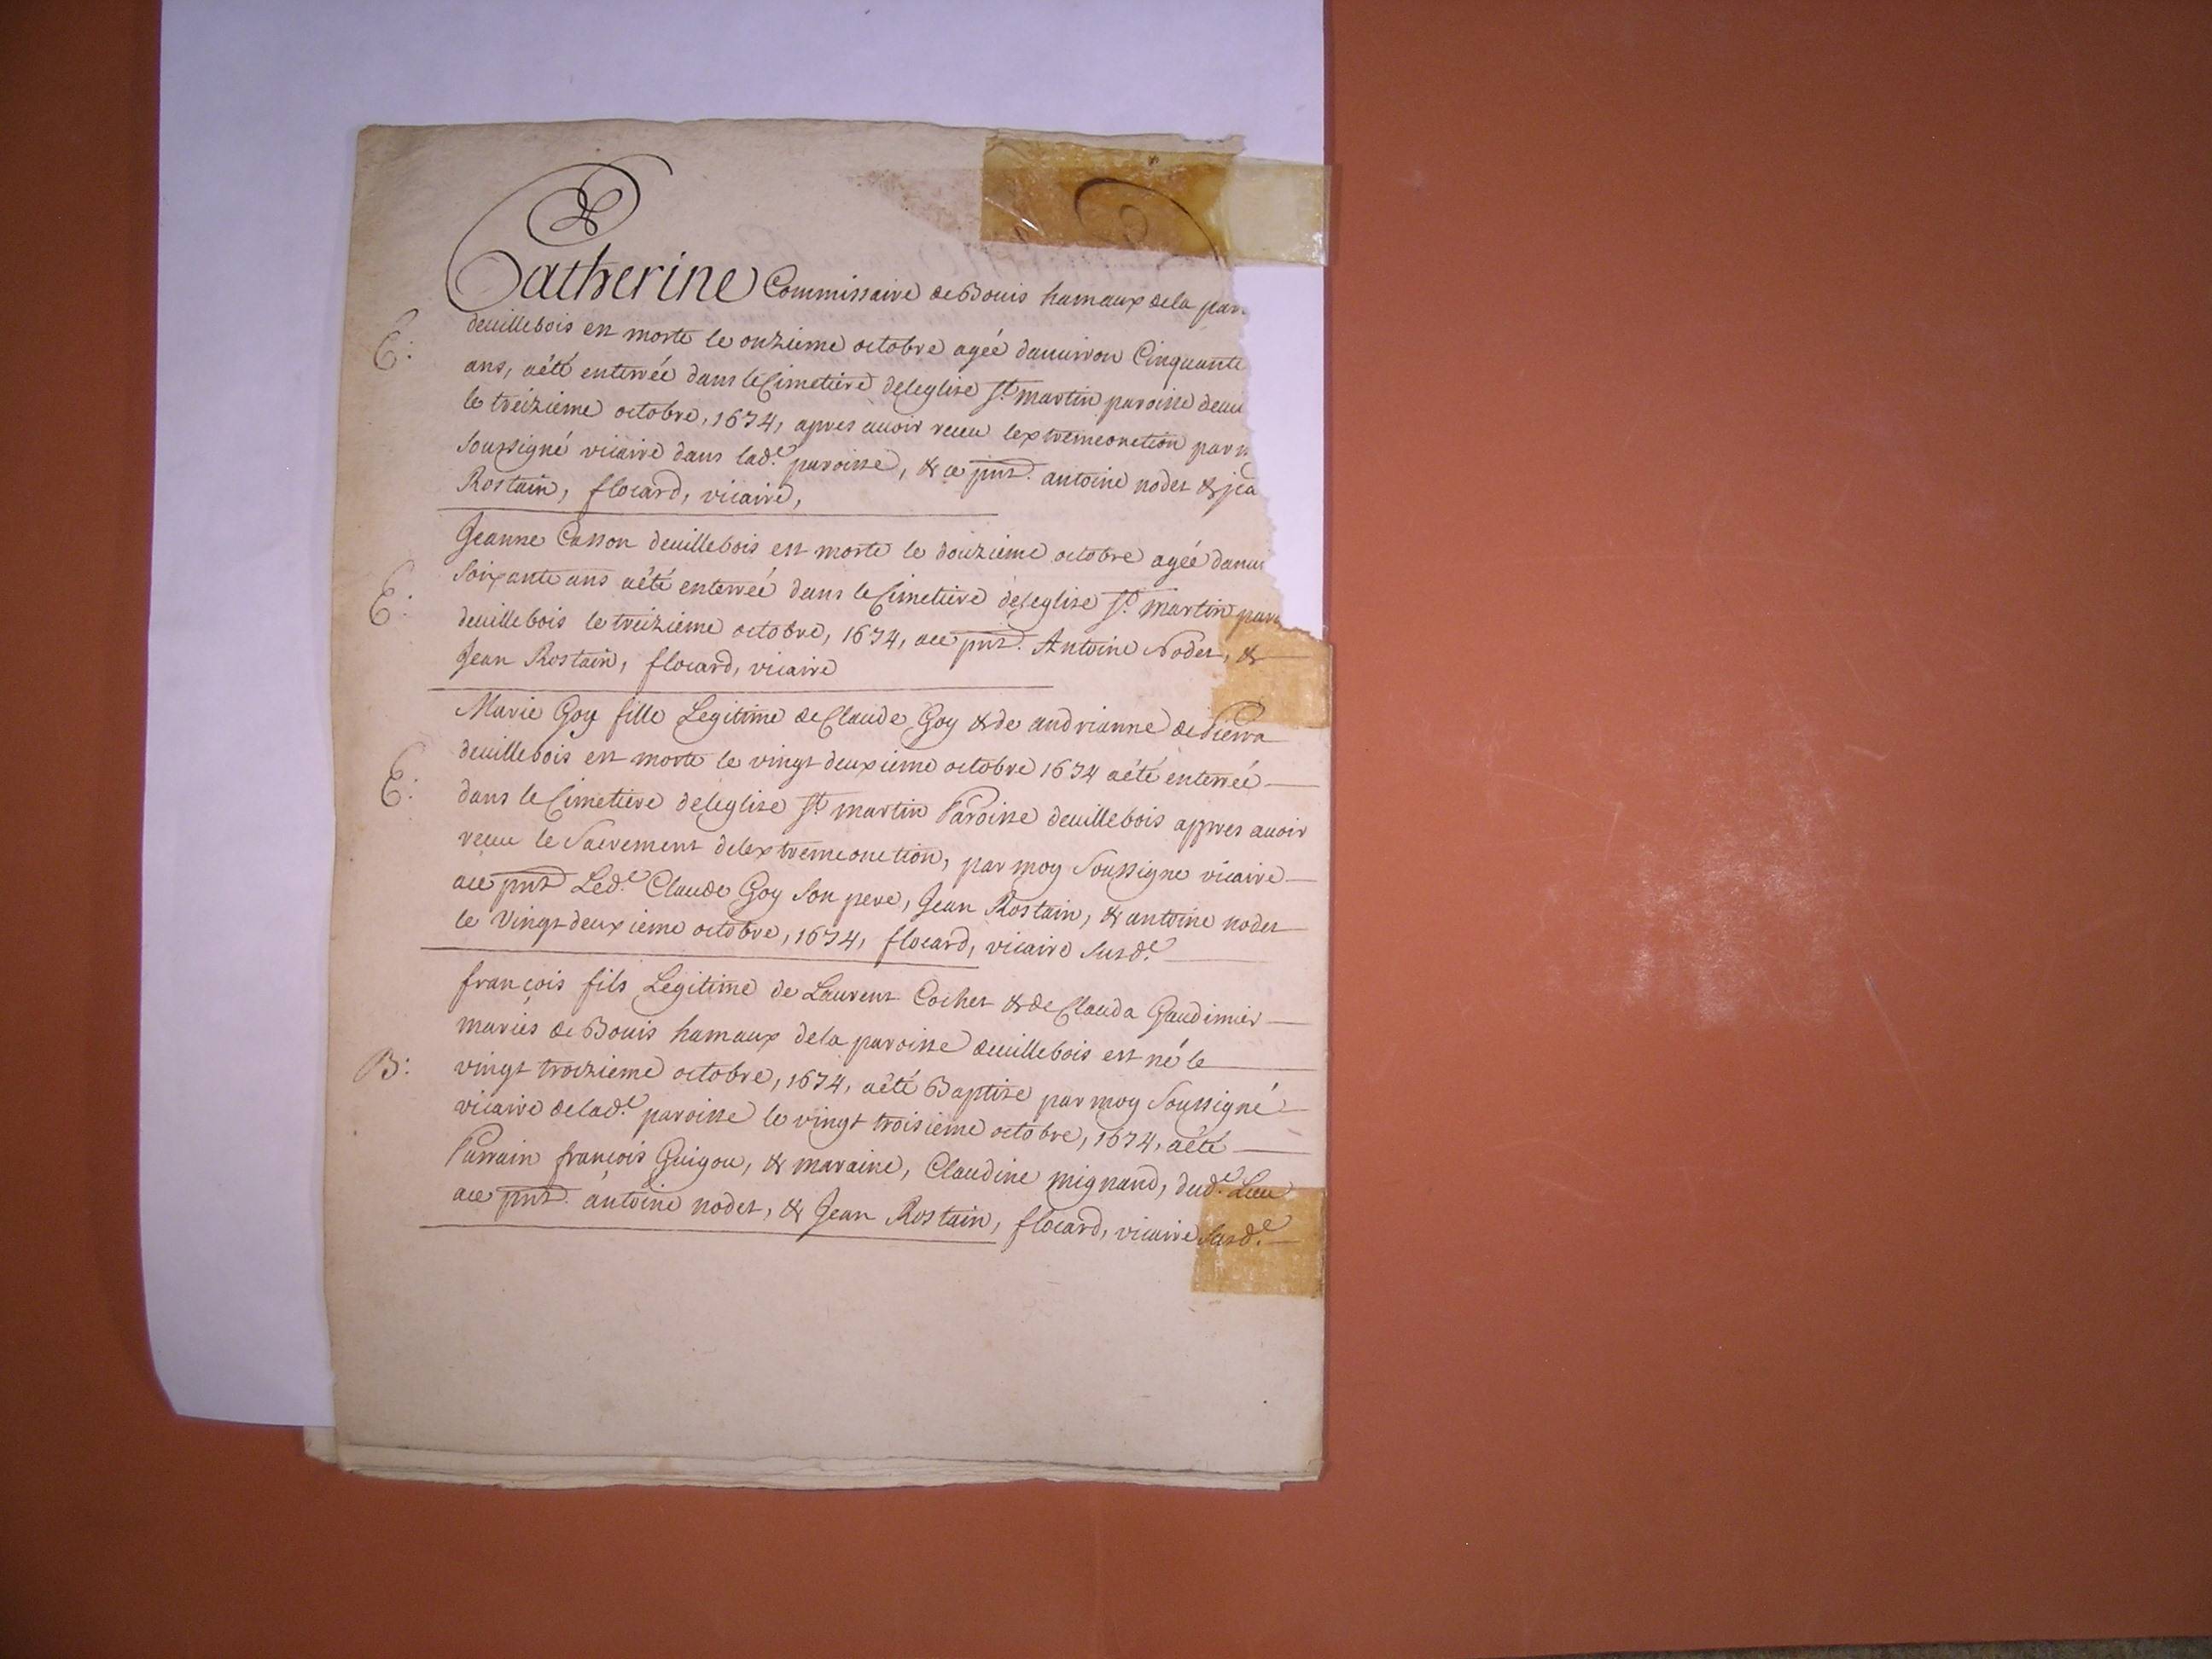 Catherine Commissaire de Bouis hamaux dela par
E: deuillebois est morte le onzieme octobre ageé danuiron Cinquante
ans, aété enterreé dans le Cimetiere deleglise St. martin paroisse deui
le treizieme octobre, 1674, apres auoir receu lextremeonction par m
Soussigné vicaire dans lade. paroisse, & ce pnt. antoine nodet & jea
Rostain, flocard, vicaire,
Jeanne Casson deuillebois est morte le douzieme octobre ageé danui
E: Soixante ans aété enterreé dans le Cimetiere deleglise St. martin paro
deuillebois le treizieme octobre, 1674, ace pnt. Antoine Nodet, &
Jean Rostain, flocard, vicaire
Marie Goy fille Legitime de Claude Goy & de andrianne de Pierra
E: deuillebois est morte le vingt deuxieme octobre 1674 aété enterreé
dans le Cimetiere deleglise St. martin Paroisse deuillebois appres auoir
receu le Sacrement delextremeonction, par moy Soussigne vicaire
ace pnt Lede. Claude Goy Son pere, Jean Rostain, & antoine nodet
le Vingt deuxieme octobre, 1674, flocard, vicaire Susde.
françois fils Legitime de Laurent Cochet & de Clauda Gaudimier
mariés de Bouis hamaux dela paroisse deuillebois est né le
B: vingt troizieme octobre, 1674, aété Baptize par moy Soussigné
vicaire delade. paroisse le vingt troisieme octobre, 1674, aété
Parrain françois Guigou, & maraine, Claudine mignand, dude. Lieu
ace pnt. antoine nodet, & Jean Rostain, flocard, vicaire Susde.